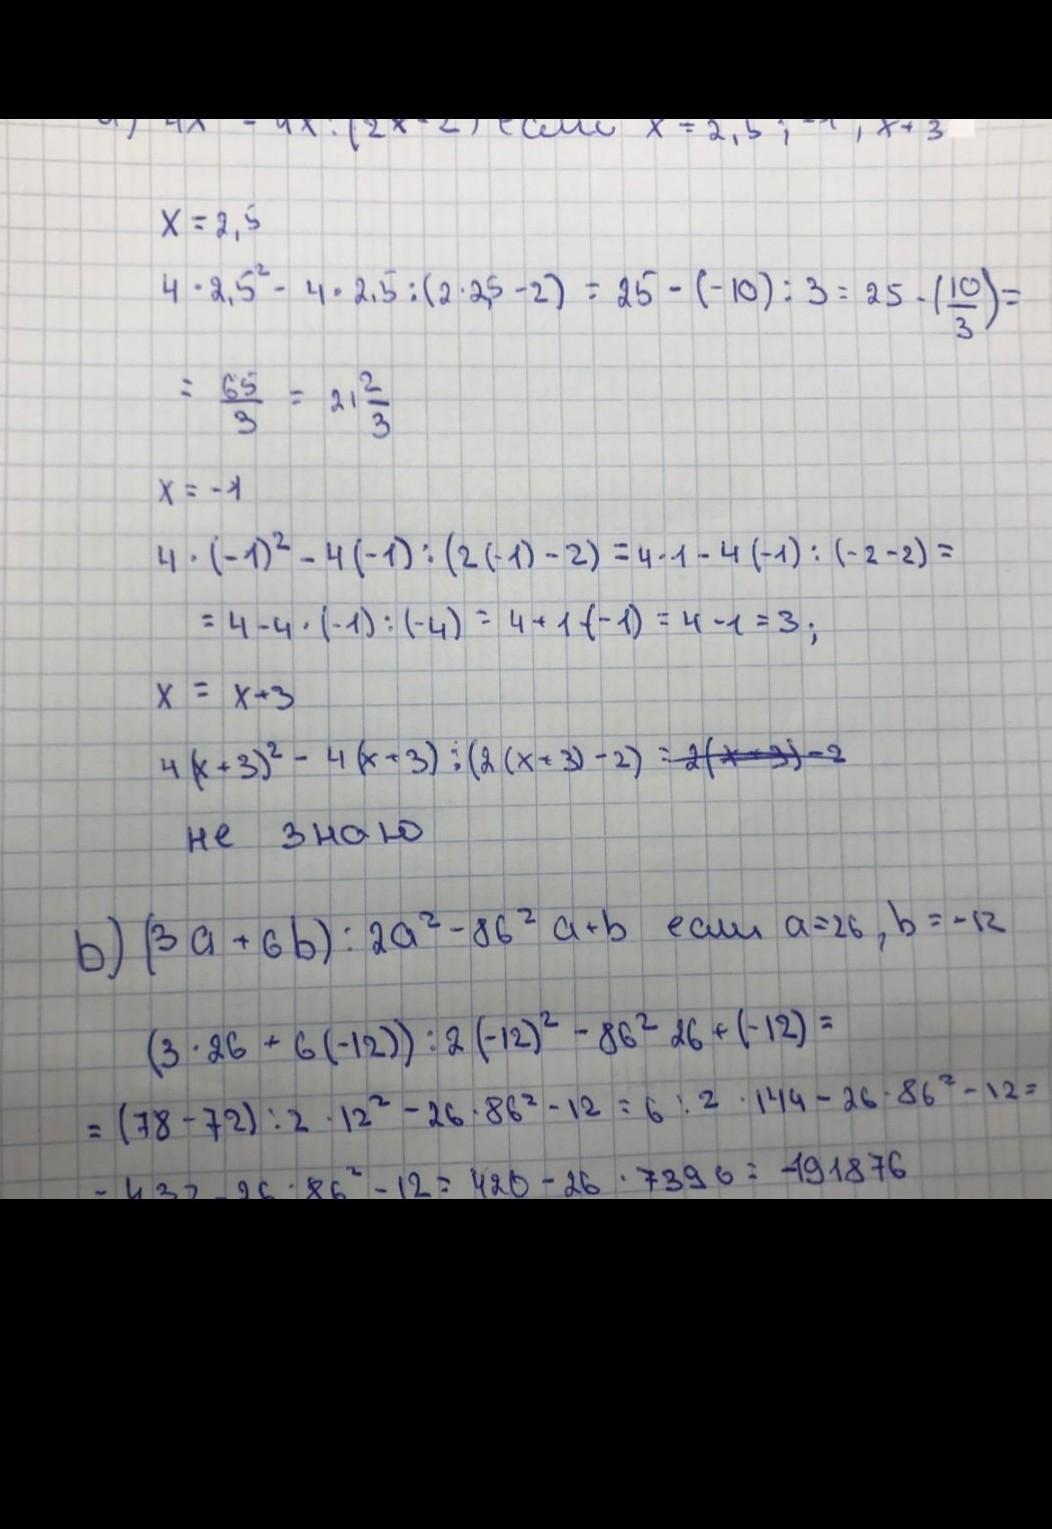 а) 4x² - 4x:(2x-2) если x = 2,5; -1, x+3
x = 2,5
4 · 2,5² - 4 · 2,5 : (2·2,5 - 2) = 25 - (-10) : 3 = 25 - (10/3) =
= 65/3 = 21 2/3
x = -1
4 · (-1)² - 4(-1) : (2(-1) - 2) = 4·1 - 4(-1) : (-2-2) =
= 4 - 4 · (-1) : (-4) = 4 + 1·(-1) = 4 - 1 = 3;
x = x+3
4(x+3)² - 4(x+3) : (2(x+3) - 2) = 2(x+3) - 2
не знаю
b) (3a + 6b) : 2a² - 86² a+b если a=26, b = -12
(3·26 + 6(-12)) : 2(-12)² - 86² 26 + (-12) =
= (78 - 72) : 2 · 12² - 26·86² - 12 = 6 : 2 · 144 - 26·86² - 12 =
= 432 - 26·86² - 12 = 420 - 26 · 7396 = -191876